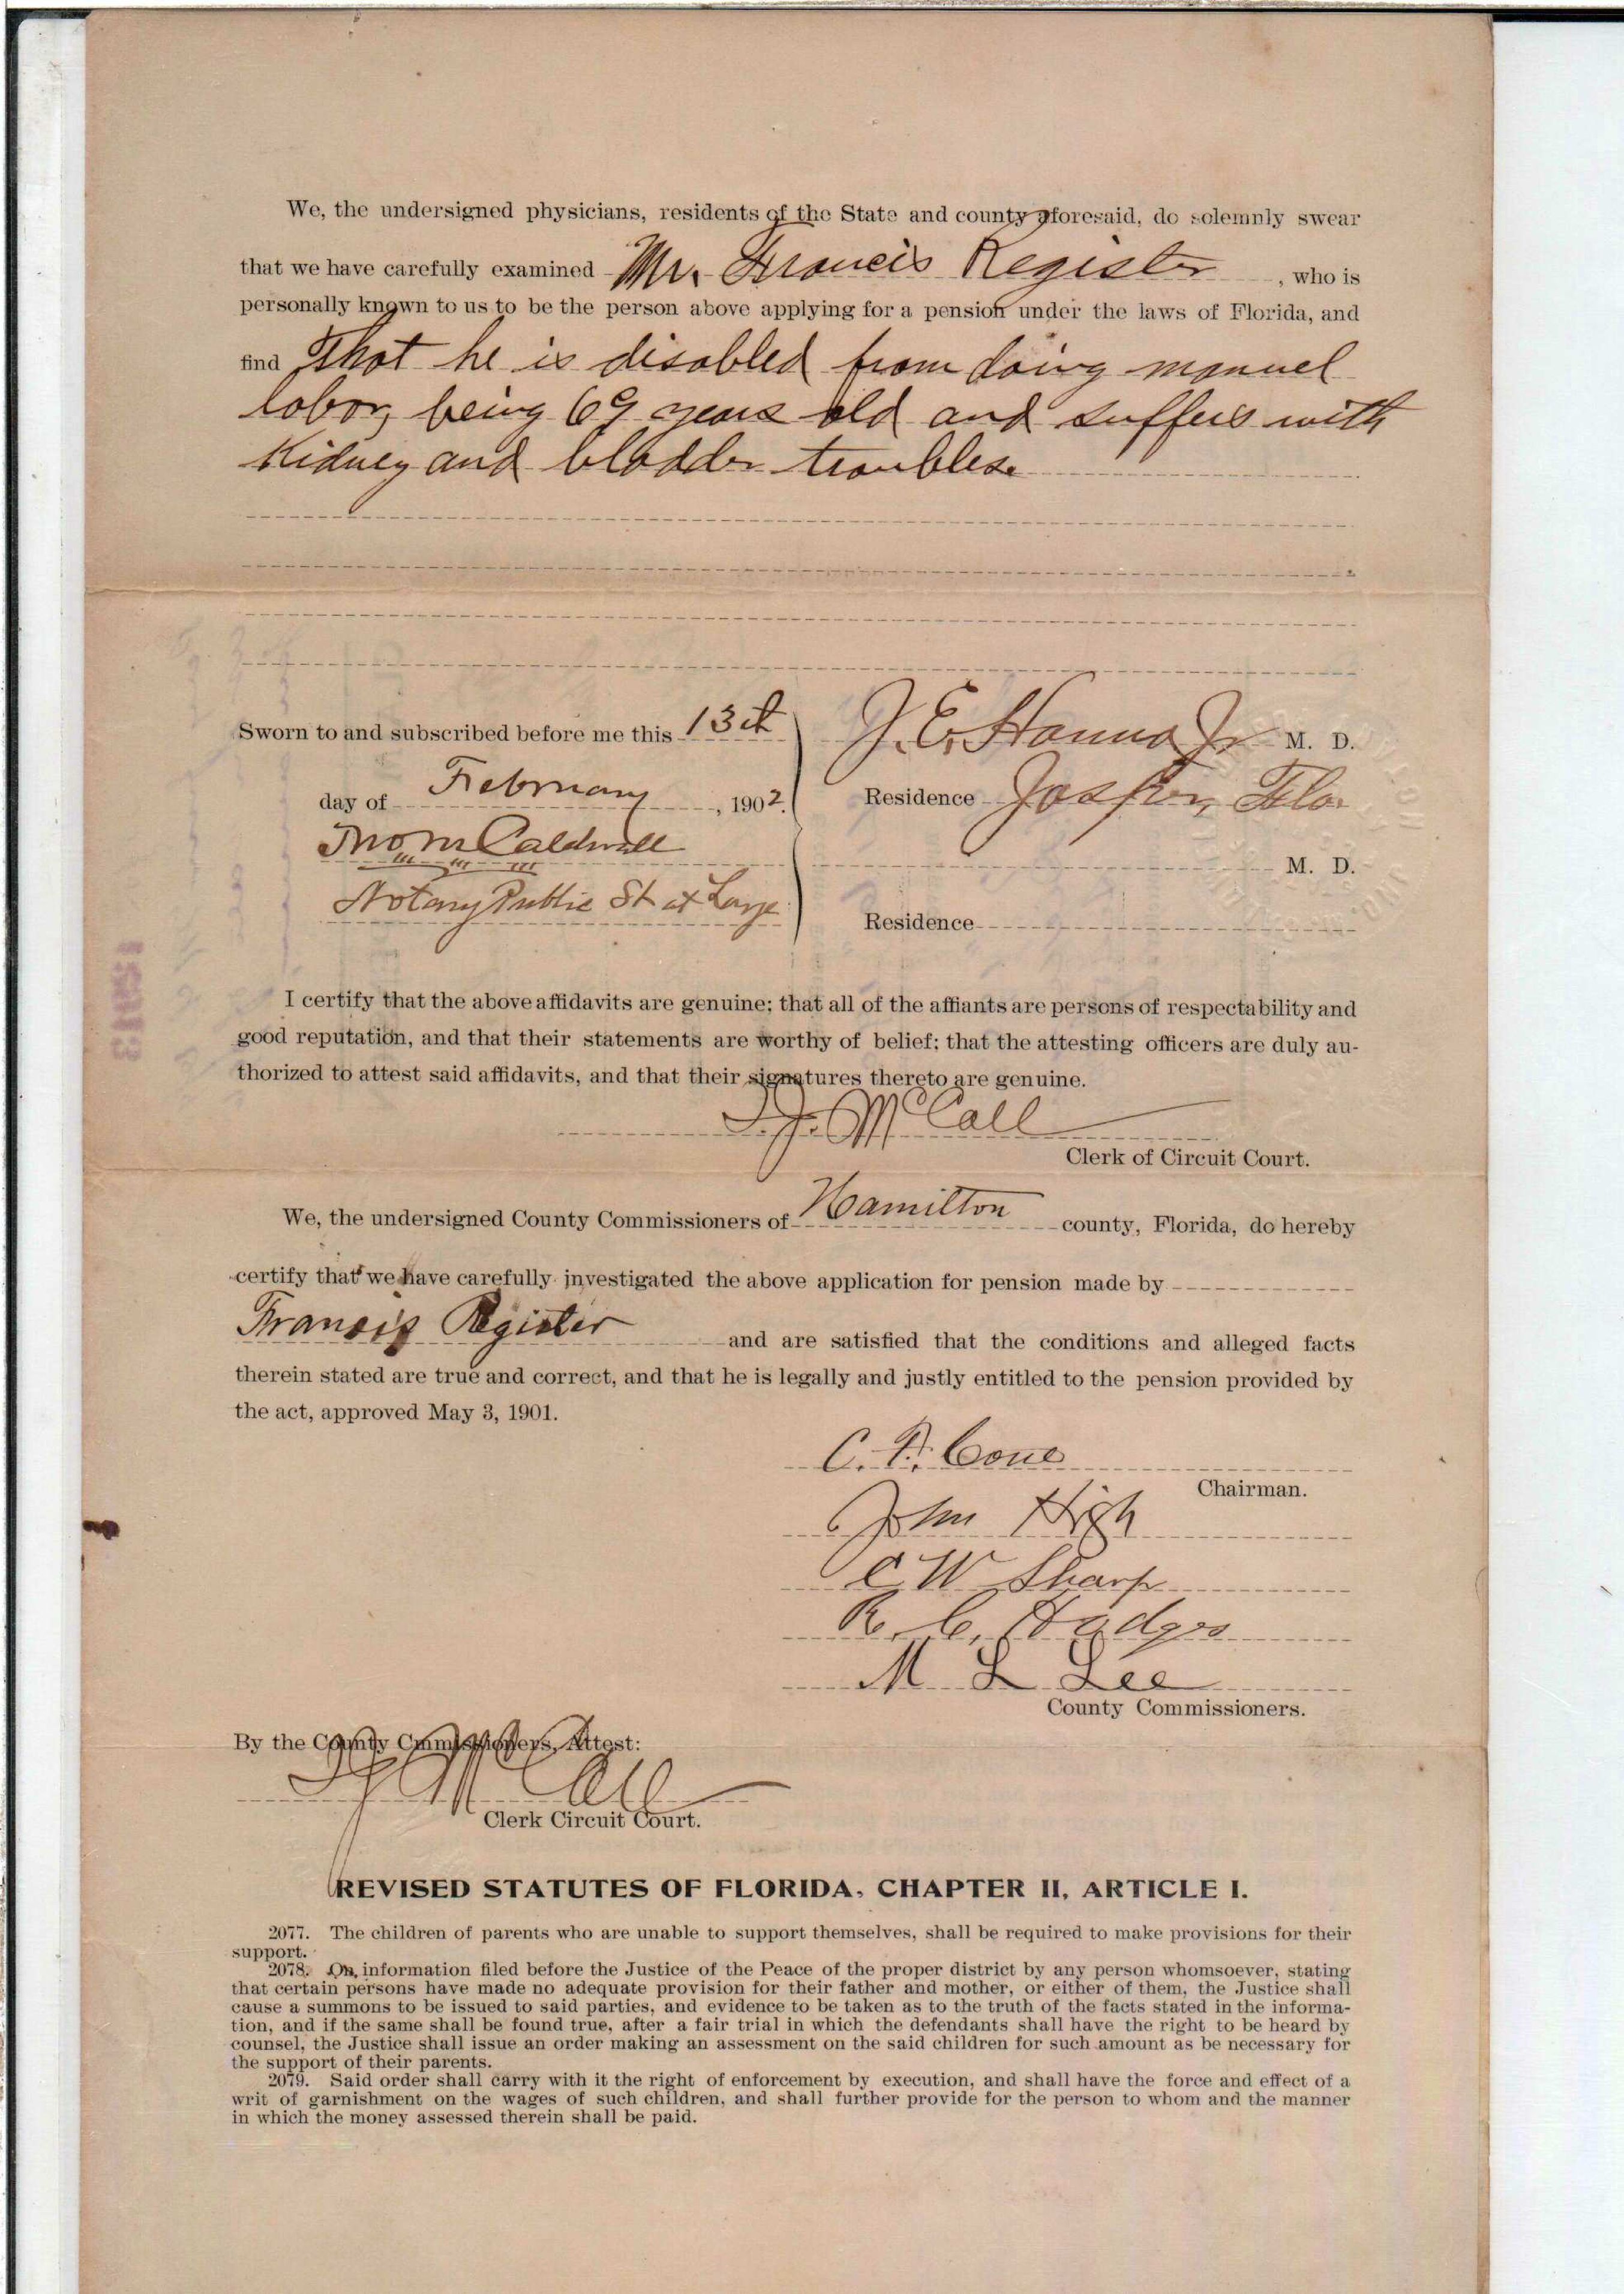 We, the undersigned physicians, residents of the State and county aforesaid, do solemnly swear
that we have carefully examined Mr. Francis Register, who is
personally known to us to be the person above applying for a pension under the laws of Florida, and
find That he is disabled from doing manuel
labor, being 69 years old and suffers with
Kidney and bladder troubles.
Sworn to and subscribed before me this 13th
day of February, 1902.
Thos M Caldwell
Notary Public St at Large
J. E. Hanna Jr M. D.
Residence Jasper, Fla.
M. D.
Residence
I certify that the above affidavits are genuine; that all of the affiants are persons of respectability and
good reputation, and that their statements are worthy of belief; that the attesting officers are duly au-
thorized to attest said affidavits, and that their signatures thereto are genuine.
McCall
Clerk of Circuit Court.
We, the undersigned County Commissioners of Hamilton county, Florida, do hereby
certify that we have carefully investigated the above application for pension made by
Francis Register and are satisfied that the conditions and alleged facts
therein stated are true and correct, and that he is legally and justly entitled to the pension provided by
the act, approved May 3, 1901.
C. F. Cone
Chairman.
John High
C W Sharp
R. C. Hodges
M L Lee
County Commissioners.
By the County Cmmissioners, Attest:
McCall
Clerk Circuit Court.
REVISED STATUTES OF FLORIDA, CHAPTER II, ARTICLE I.
2077. The children of parents who are unable to support themselves, shall be required to make provisions for their
support.
2078. On information filed before the Justice of the Peace of the proper district by any person whomsoever, stating
that certain persons have made no adequate provision for their father and mother, or either of them, the Justice shall
cause a summons to be issued to said parties, and evidence to be taken as to the truth of the facts stated in the informa-
tion, and if the same shall be found true, after a fair trial in which the defendants shall have the right to be heard by
counsel, the Justice shall issue an order making an assessment on the said children for such amount as be necessary for
the support of their parents.
2079. Said order shall carry with it the right of enforcement by execution, and shall have the force and effect of a
writ of garnishment on the wages of such children, and shall further provide for the person to whom and the manner
in which the money assessed therein shall be paid.